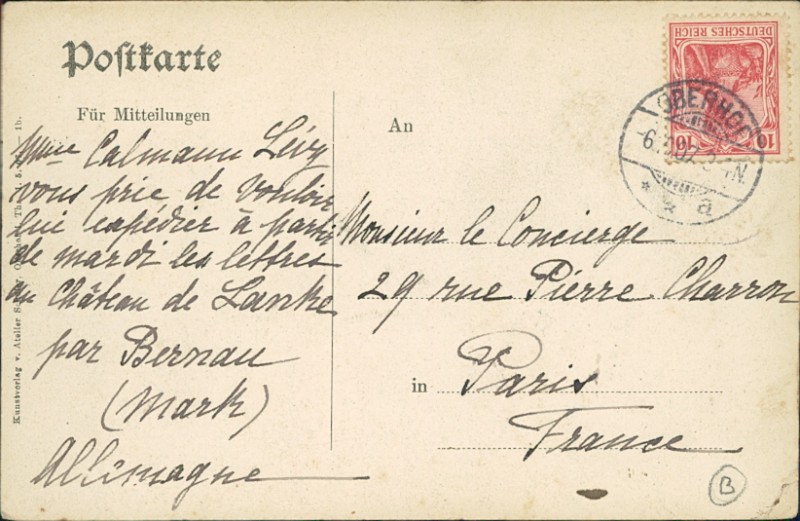 Postkarte
Für Mitteilungen
Mme Calmann Lévy
vous prie de vouloir
lui expédier à partir
de mardi les lettres
au Château de Lanke
par Bernau
(Mark)
Allemagne
An
Monsieur le Concierge
29 rue Pierre Charron
in Paris
France
DEUTSCHES REICH
10 10
OBERHOF
a
B
Kunstverlag v. Atelier